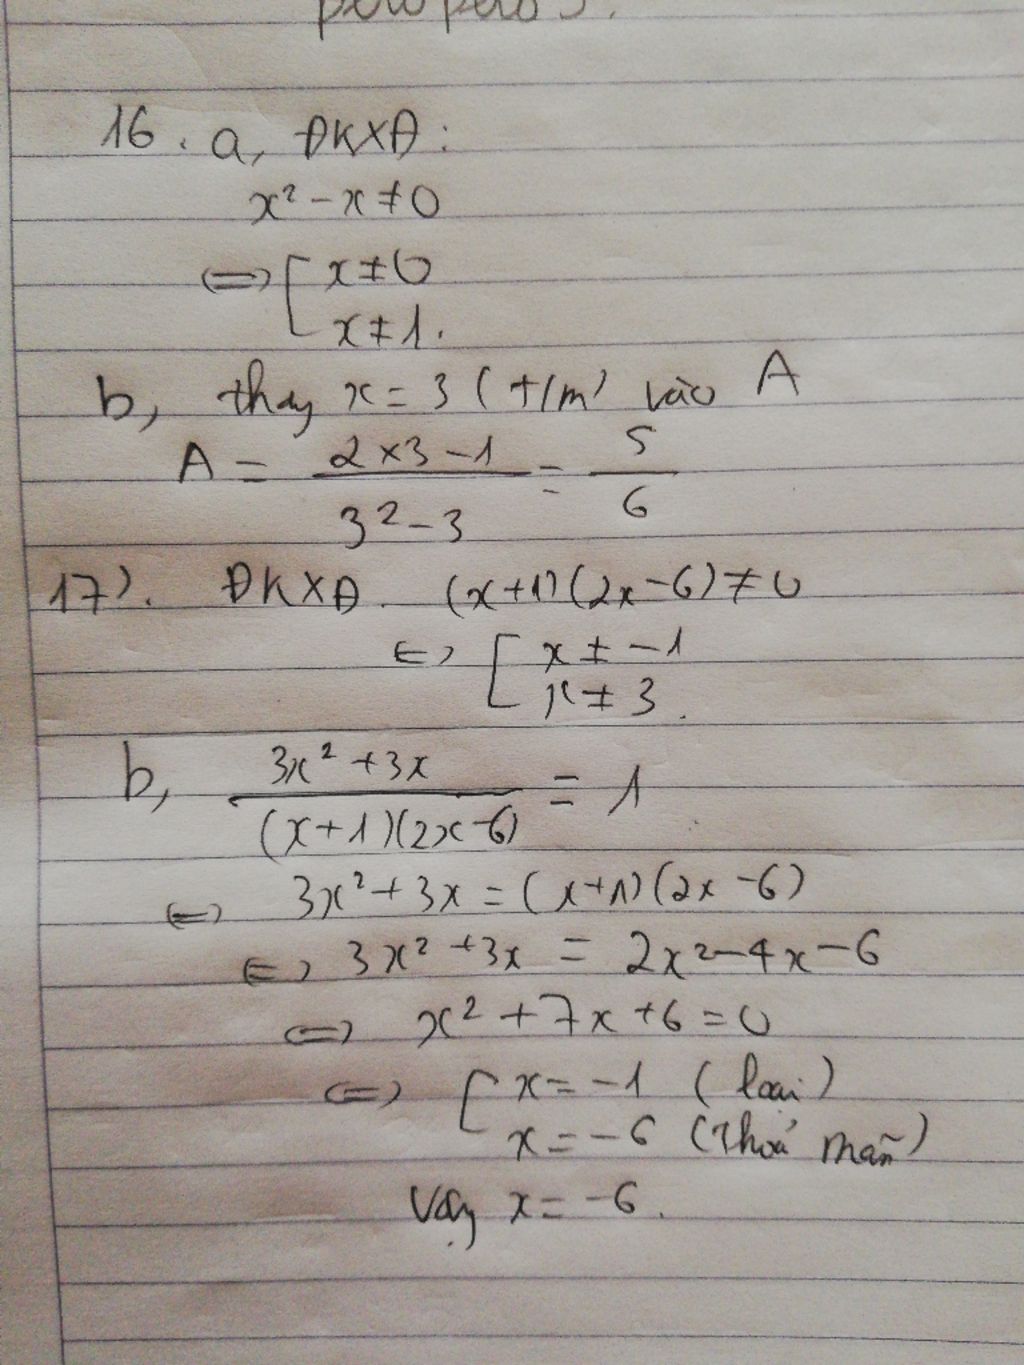 16. a, ĐKXĐ:
x² - x ≠ 0
⇔ [ x ≠ 0
x ≠ 1.
b, thay x = 3 (t/m) vào A
A = (2×3 - 1)/(3² - 3) = 5/6
17). ĐKXĐ. (x+1)(2x-6) ≠ 0
⇔ [ x ≠ -1
x ≠ 3.
b, (3x² + 3x)/((x+1)(2x-6)) = 1
⇔ 3x² + 3x = (x+1)(2x-6)
⇔ 3x² + 3x = 2x² - 4x - 6
⇔ x² + 7x + 6 = 0
⇔ [ x = -1 (loại)
x = -6 (Thoả mãn)
Vậy x = -6.